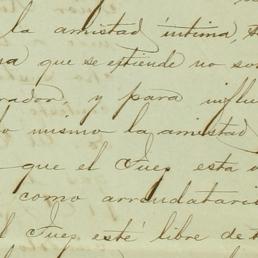 la amistad íntima, 
que se estiende no so
rador, y para influ
lo mismo la amistad
que el Juez esta
como arrendatari
el Juez esté libre de